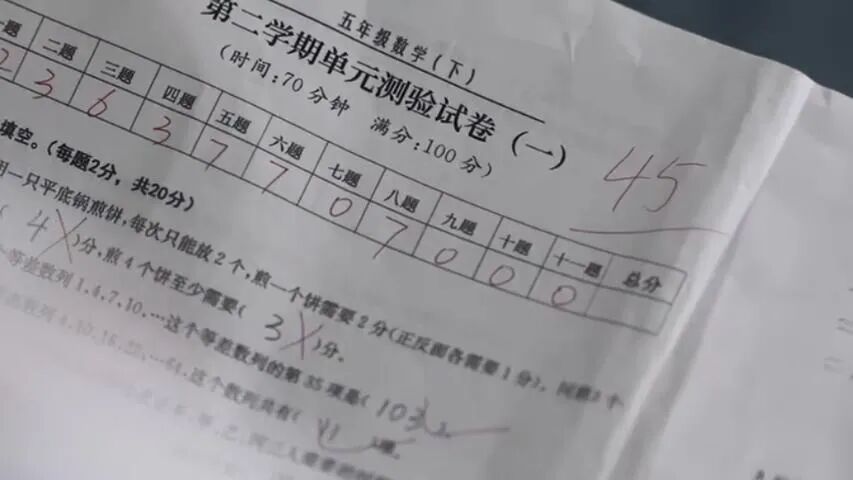 五年级数学(下)
第二学期单元测验试卷(一)
(时间:70分钟 满分:100分)
45
题 二题 三题 四题 五题 六题 七题 八题 九题 十题 十一题 总分
2 3 6 3 7 7 0 7 0 0 0
填空。(每题2分,共20分)
用一只平底锅煎饼,每次只能放2个,煎一个饼需要2分(正反面各需要1分),问煎3个
4 )分,煎4个饼至少需要( 3 )分。
等差数列1,4,7,10,…这个等差数列的第35项是( 103 ).
4,10,16,22,… 这个数列共有( 11 )项。